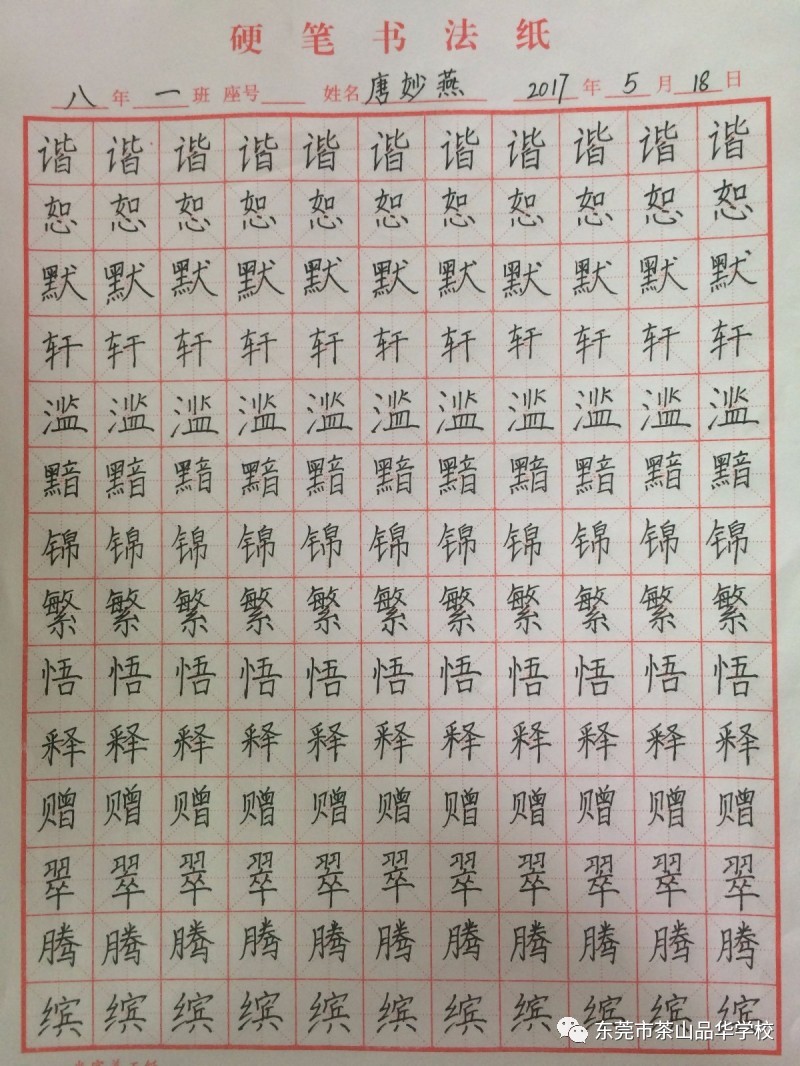 硬笔书法纸
八年一班 座号 姓名 唐妙燕 2017年5月18日
谐谐谐谐谐谐谐谐谐谐谐
恕恕恕恕恕恕恕恕恕恕恕
默默默默默默默默默默默
轩轩轩轩轩轩轩轩轩轩轩
滥滥滥滥滥滥滥滥滥滥滥
黯黯黯黯黯黯黯黯黯黯黯
锦锦锦锦锦锦锦锦锦锦锦
繁繁繁繁繁繁繁繁繁繁繁
悟悟悟悟悟悟悟悟悟悟悟
释释释释释释释释释释释
赠赠赠赠赠赠赠赠赠赠赠
翠翠翠翠翠翠翠翠翠翠翠
腾腾腾腾腾腾腾腾腾腾腾
缤缤缤缤缤缤缤缤缤缤缤
东莞市茶山品华学校